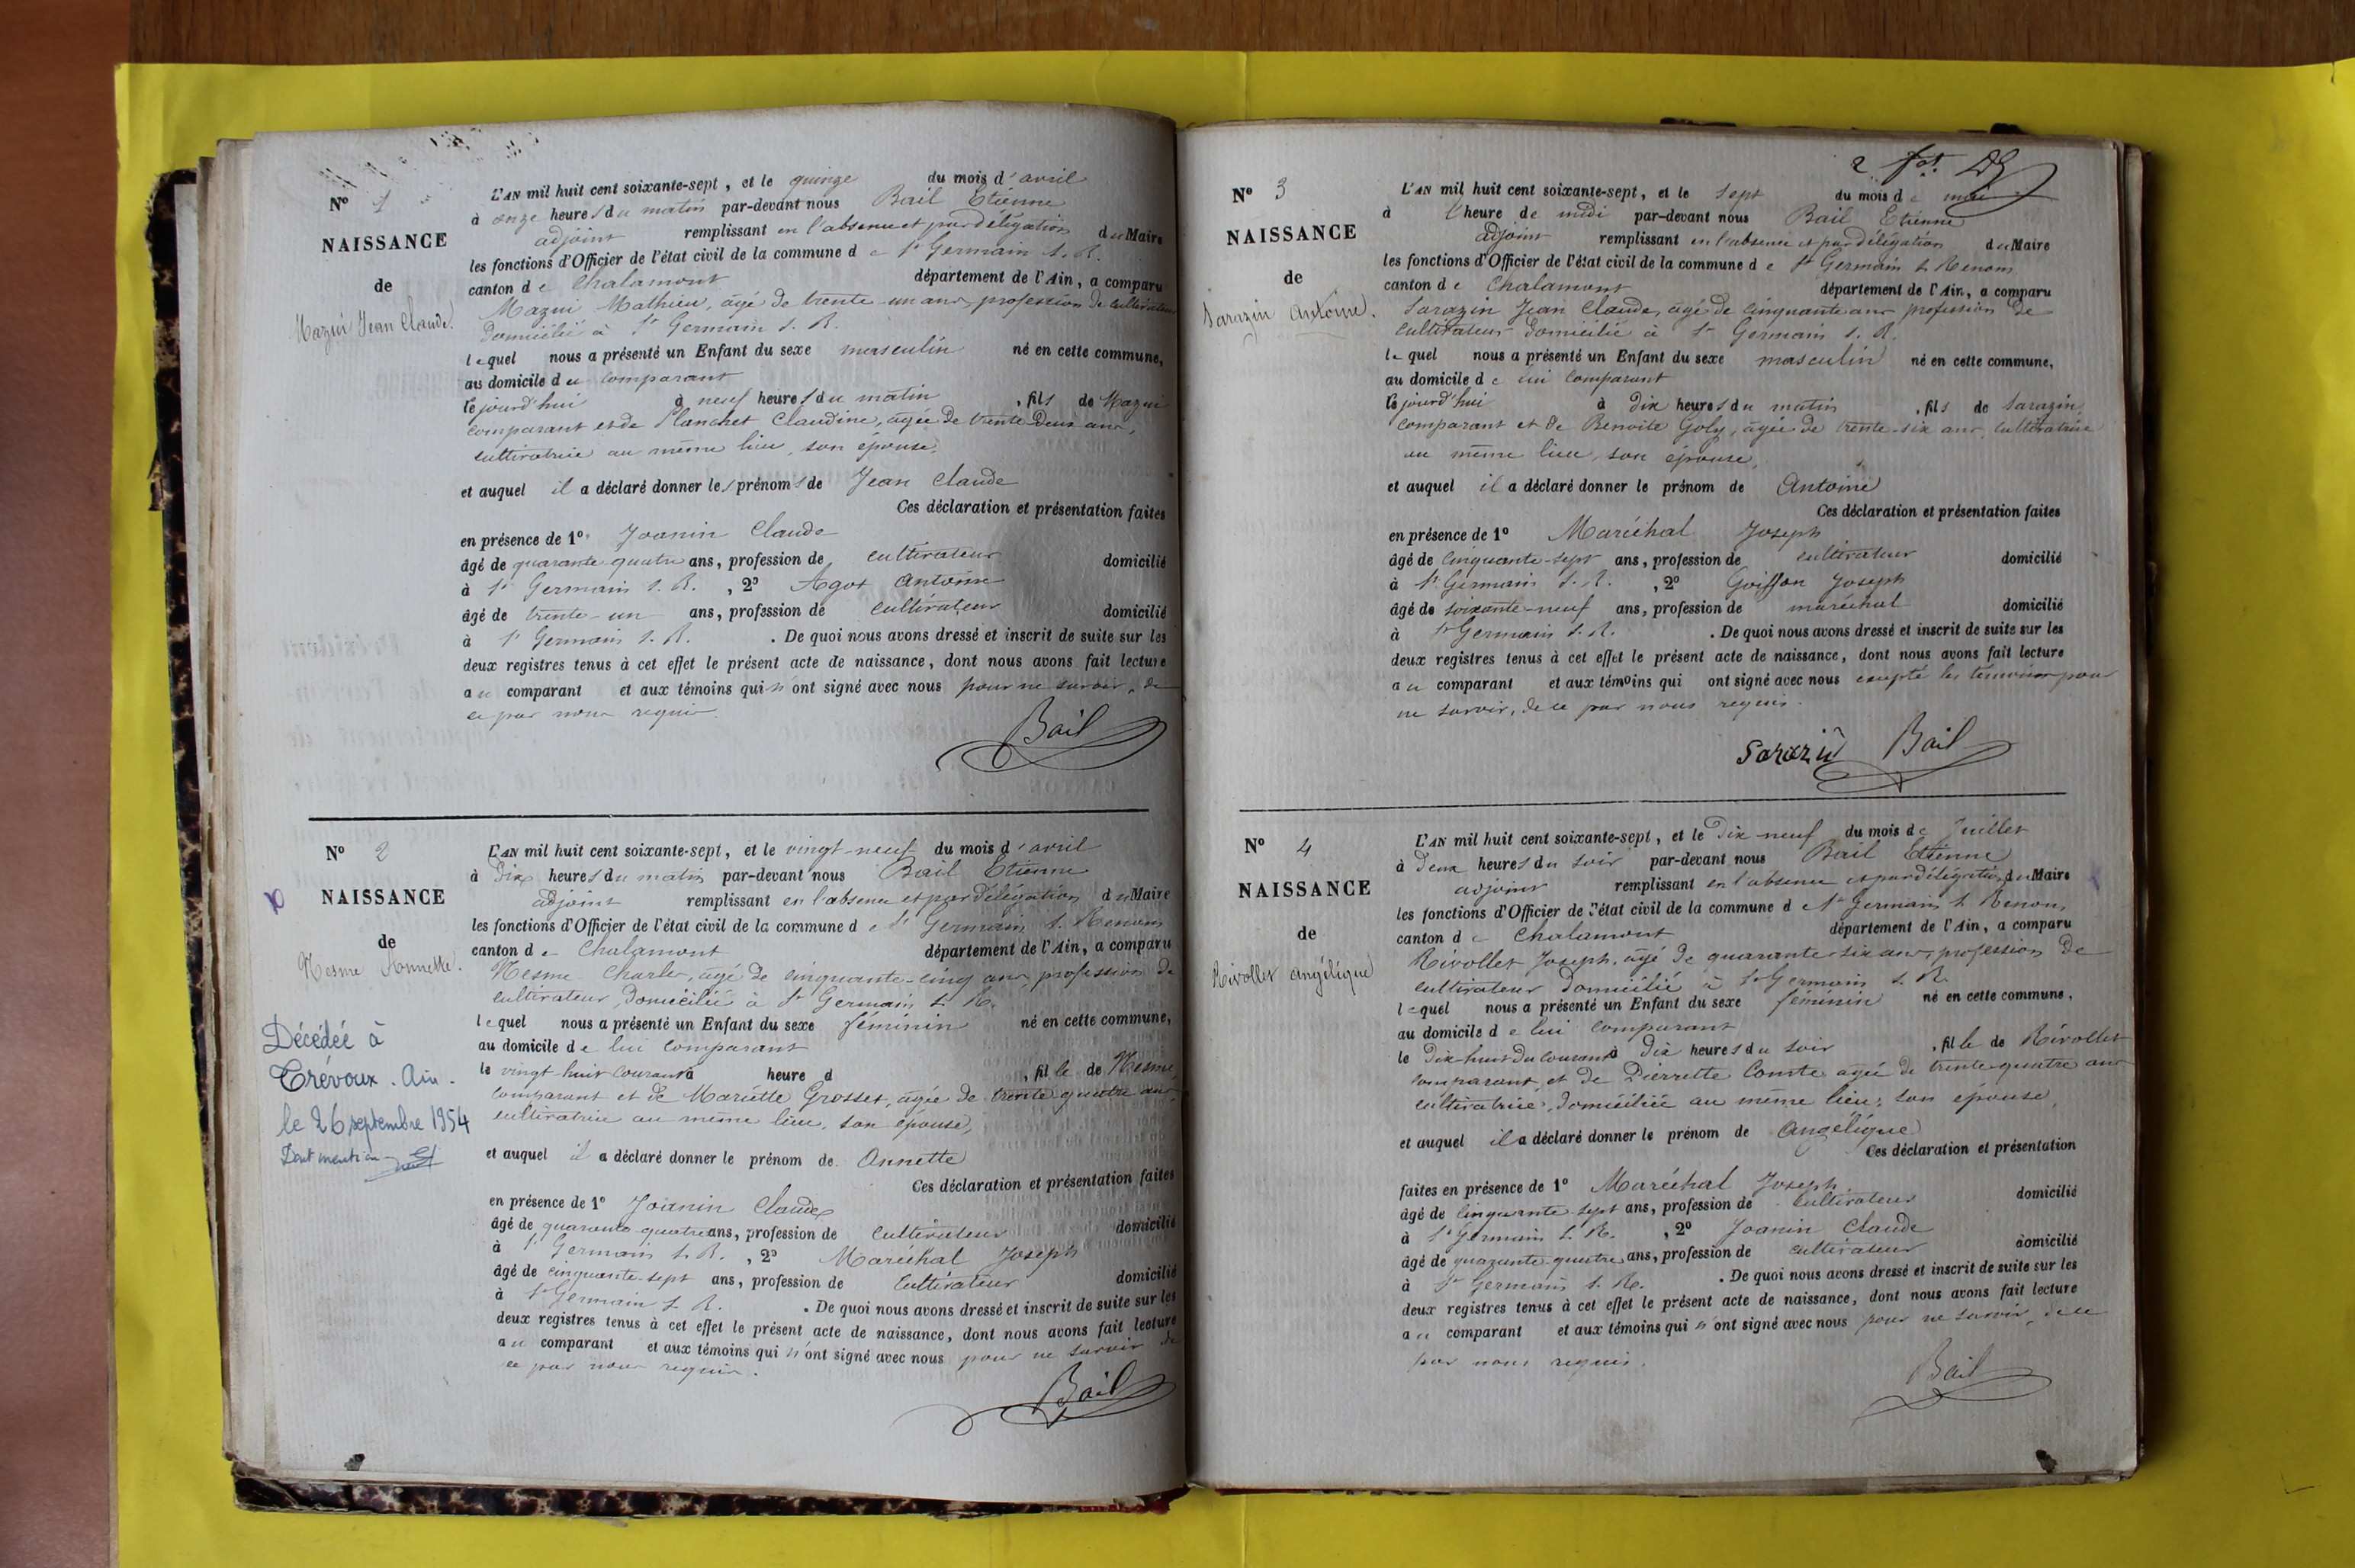 Nº 1
NAISSANCE
de
Mazui Jean Claude.
L'AN mil huit cent soixante-sept, et le quinze du mois d'avril
à onze heures du matin par-devant nous Bail Etienne
adjoint remplissant en l'absence et par délégation du Maire
les fonctions d'Officier de l'état civil de la commune de St Germain s. R.
canton de Chalamont département de l'Ain, a comparu
Mazui Mathieu, âgé de trente-un ans, profession de cultivateur
domicilié à St Germain s. R.
lequel nous a présenté un Enfant du sexe masculin né en cette commune,
au domicile du comparant
le jourd'hui à neuf heures du matin, fils de Mazui
comparant et de Planchet Claudine, âgée de trente deux ans,
cultivatrice au même lieu, son épouse,
et auquel il a déclaré donner les prénoms de Jean Claude
Ces déclaration et présentation faites
en présence de 1º Joanin Claude
âgé de quarante-quatre ans, profession de cultivateur domicilié
à St Germain s. R., 2º Agot Antoine
âgé de trente-un ans, profession de cultivateur domicilié
à St Germain s. R. . De quoi nous avons dressé et inscrit de suite sur les
deux registres tenus à cet effet le présent acte de naissance, dont nous avons fait lecture
au comparant et aux témoins qui n'ont signé avec nous pour ne savoir, de
ce par nous requis.
Bail
Nº 2
NAISSANCE
de
Mesme Annette.
Décédée à
Trévoux. Ain.
le 26 septembre 1954
Dont mention
L'AN mil huit cent soixante-sept, et le vingt-neuf du mois d'avril
à dix heures du matin par-devant nous Bail Etienne
adjoint remplissant en l'absence et par délégation du Maire
les fonctions d'Officier de l'état civil de la commune de St Germain s. Renom
canton de Chalamont département de l'Ain, a comparu
Mesme Charles, âgé de cinquante-cinq ans, profession de
cultivateur, domicilié à St Germain s. R.
lequel nous a présenté un Enfant du sexe féminin né en cette commune,
au domicile de lui comparant
le vingt-huit courant à heure d , fille de Mesme
comparant et de Mariette Grosset, âgée de trente quatre ans,
cultivatrice au même lieu, son épouse,
et auquel il a déclaré donner le prénom de Annette
Ces déclaration et présentation faites
en présence de 1º Joanin Claude
âgé de quarante-quatre ans, profession de cultivateur domicilié
à St Germain s. R., 2º Maréchal Joseph
âgé de cinquante-sept ans, profession de cultivateur domicilié
à St Germain s. R. . De quoi nous avons dressé et inscrit de suite sur les
deux registres tenus à cet effet le présent acte de naissance, dont nous avons fait lecture
au comparant et aux témoins qui n'ont signé avec nous pour ne savoir de
ce par nous requis.
Bail
2
Nº 3
NAISSANCE
de
Sarazin Antoine.
L'AN mil huit cent soixante-sept, et le sept du mois de mai
à l'heure de midi par-devant nous Bail Etienne
adjoint remplissant en l'absence et par délégation du Maire
les fonctions d'Officier de l'état civil de la commune de St Germain s. Renom
canton de Chalamont département de l'Ain, a comparu
Sarazin Jean Claude, âgé de cinquante ans profession de
cultivateur domicilié à St Germain s. R.
lequel nous a présenté un Enfant du sexe masculin né en cette commune,
au domicile de lui comparant
le jourd'hui à dix heures du matin, fils de Sarazin
comparant et de Benoite Goly, âgée de trente-six ans, cultivatrice
au même lieu, son épouse,
et auquel il a déclaré donner le prénom de Antoine
Ces déclaration et présentation faites
en présence de 1º Maréchal Joseph
âgé de cinquante-sept ans, profession de cultivateur domicilié
à St Germain s. R., 2º Goiffon Joseph
âgé de soixante-neuf ans, profession de maréchal domicilié
à St Germain s. R. . De quoi nous avons dressé et inscrit de suite sur les
deux registres tenus à cet effet le présent acte de naissance, dont nous avons fait lecture
au comparant et aux témoins qui ont signé avec nous excepté les témoins pour
ne savoir, de ce par nous requis.
Sarazin Bail
Nº 4
NAISSANCE
de
Rivollet Angélique
L'AN mil huit cent soixante-sept, et le dix-neuf du mois de Juillet
à deux heures du soir par-devant nous Bail Etienne
adjoint remplissant en l'absence et par délégation du Maire
les fonctions d'Officier de l'état civil de la commune de St Germain s. Renom,
canton de Chalamont département de l'Ain, a comparu
Rivollet Joseph, âgé de quarante-six ans, profession de
cultivateur domicilié à St Germain s. R.
lequel nous a présenté un Enfant du sexe féminin né en cette commune,
au domicile de lui comparant
le dix-huit du courant à dix heures du soir, fille de Rivollet
comparant, et de Pierrette Comte âgée de trente-quatre ans
cultivatrice, domiciliée au même lieu, son épouse,
et auquel il a déclaré donner le prénom de Angélique
Ces déclaration et présentation
faites en présence de 1º Maréchal Joseph
âgé de cinquante-sept ans, profession de cultivateur domicilié
à St Germain s. R., 2º Joanin Claude
âgé de quarante-quatre ans, profession de cultivateur domicilié
à St Germain s. R. . De quoi nous avons dressé et inscrit de suite sur les
deux registres tenus à cet effet le présent acte de naissance, dont nous avons fait lecture
au comparant et aux témoins qui n'ont signé avec nous pour ne savoir, de ce
par nous requis.
Bail